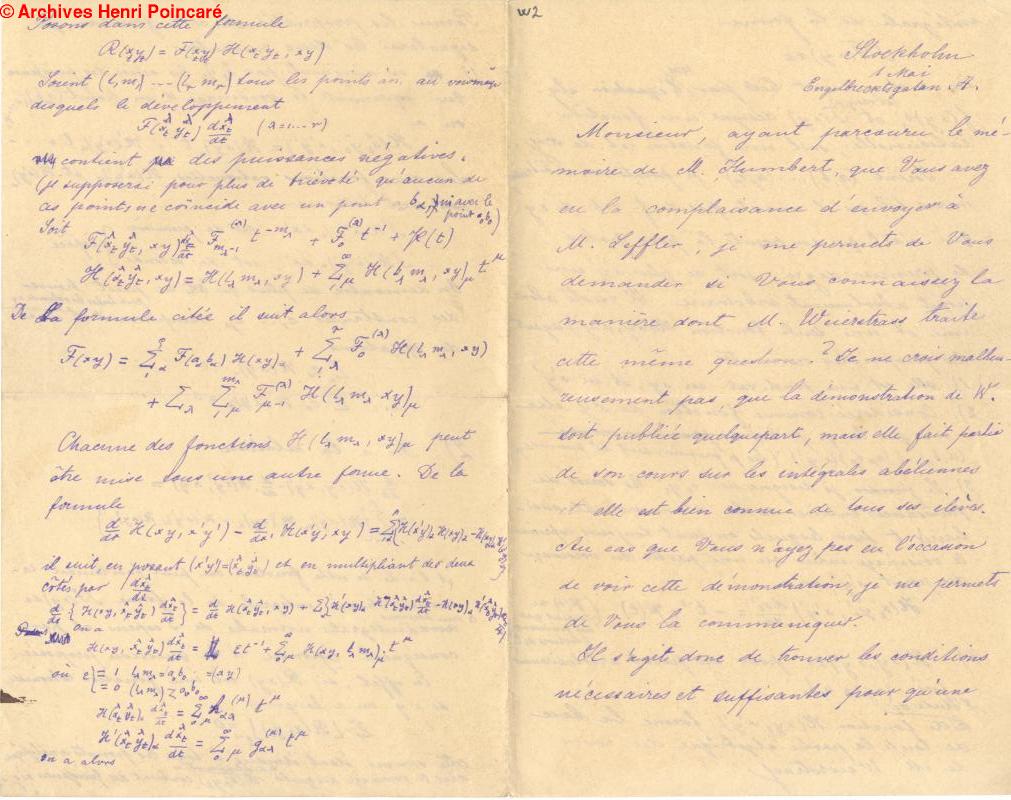 © Archives Henri Poincaré
Posons dans cette formule
R(xy) = F(xy) H(x_t y_t, xy)
Soient (l₁m₁) .... (l_r m_r) tous les points au voisinage
desquels le développement
F(x_t^λ y_t^λ) dx_t^λ/dt (λ=1...r)
contient des puissances négatives.
(je supposerai pour plus de briéveté qu'aucun de
ces points ne coïncide avec un point a_α b_α, ni avec le
point a₀b₀)
Soit
F(x_t^λ y_t^λ) dx_t^λ/dt F_{m_λ-1}^{(λ)} t^{-m_λ} + F_0^{(λ)} t^{-1} + P(t)
H(x_t^λ y_t^λ, xy) = H(l_λ m_λ, xy) + Σ_μ^∞ H(l_λ m_λ, xy)_μ t^μ
De la formule citée il suit alors
F(xy) = Σ_α F(a_α b_α) H(xy)_α + Σ_λ^r F_0^{(λ)} H(l_λ m_λ, xy)
+ Σ_λ Σ_μ^{m_λ} F_{μ-1}^{(λ)} H(l_λ m_λ xy)_μ
Chacune des fonctions H(l_λ m_λ, xy)_μ peut
être mise sous une autre forme. De la
formule
d/dx H(xy, x'y') - d/dx' H(x'y', xy) = Σ {H(x'y')_α H'(xy)_α - H(xy)_α H'(x'y')_α}
il suit, en posant (x'y') = (x_t^λ y_t^λ) et en multipliant des deux
côtés par dx_t^λ/dt
d/dx {H(xy, x_t^λ y_t^λ) dx_t^λ/dt} = d/dt H(x_t^λ y_t^λ, xy) + Σ {H'(xy)_α H(x_t^λ y_t^λ)_α dx_t^λ/dt - H(xy)_α H'(x_t^λ y_t^λ)_α dx_t^λ/dt}
on a
H(xy, x_t^λ y_t^λ) dx_t^λ/dt = ε t^{-1} + Σ_μ^∞ H(xy, l_λ m_λ)_μ t^μ
où ε = 1 l_λ m_λ = a₀b₀, = (xy)
= 0 (l_λ m_λ) ≷ a₀b₀
H(x_t^λ y_t^λ)_α dx_t^λ/dt = Σ_μ^∞ h_{αλ}^{(μ)} t^μ
H'(x_t^λ y_t^λ)_α dx_t^λ/dt = Σ_μ^∞ g_{αλ}^{(μ)} t^μ
on a alors
W2
Stockholm
1 Mai
Engelbrecktsgatan 4.
Monsieur, ayant parcouru le mé-
moire de M. Humbert, que Vous avez
eu la complaisance d'envoyer à
M. Leffler, je me permets de Vous
demander si Vous connaissez la
manière dont M. Weierstrass traite
cette même question.? Je ne crois malheu-
reusement pas, que la démonstration de W.
soit publiée quelquepart, mais elle fait partie
de son cours sur les intégrales abéliennes
et elle est bien connue de tous ses élèves.
Au cas que Vous n'ayez pas eu l'occasion
de voir cette démonstration, je me permets
de Vous la communiquer.
Il s'agit donc de trouver les conditions
nécessaires et suffisantes pour qu'une